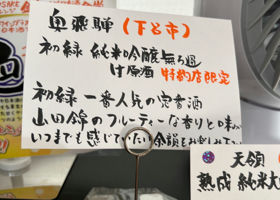 奥飛騨（下呂市）
初緑 純米吟醸無ろ過
け原酒 特約店限定
初緑 一番人気の定番酒
山田錦のフルーティーな香りと味が
いつまでも感じていたい余韻もお楽しみ下さい
天領
熟成 純米